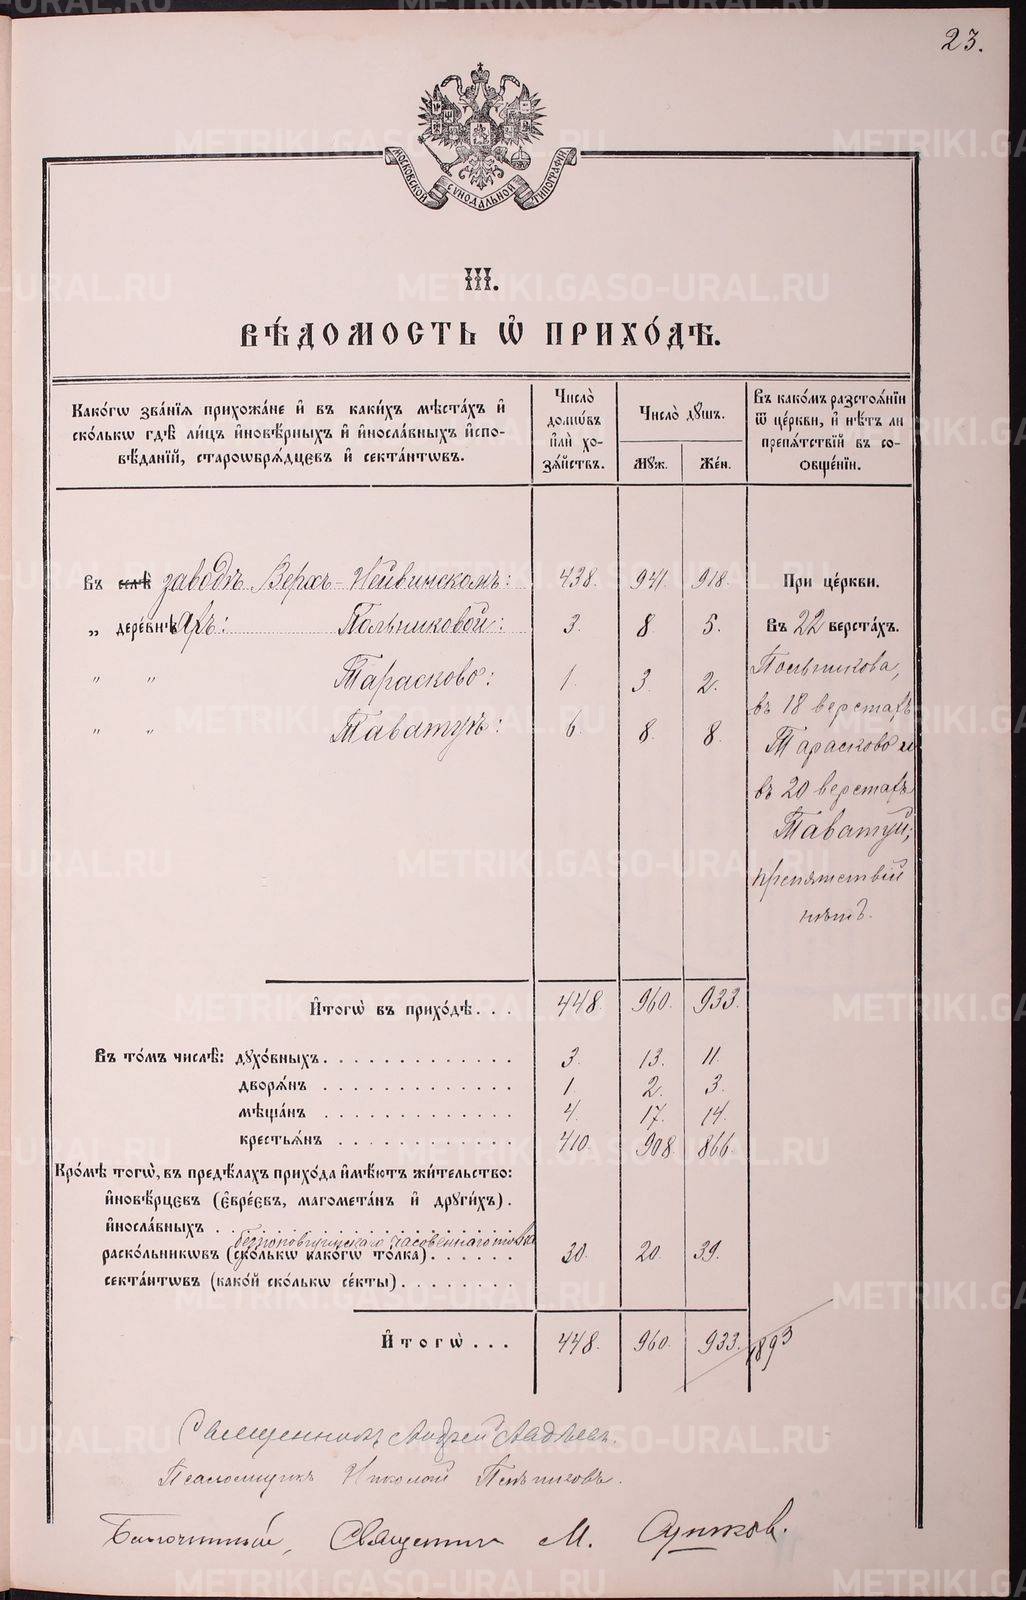 23.
МОСКОВСКОЙ СѴНОДАЛЬНОЙ ТИПОГРАФІИ
III.
ВѢ́ДОМОСТЬ Ѡ҆ ПРИХО́ДѢ.
Како́гѡ зва́нїѧ прихожа́не и҆ въ каки́хъ мѣста́хъ и҆
ско́лькѡ гдѣ̀ ли́цъ и҆новѣ́рныхъ и҆ и҆носла́вныхъ и҆спо-
вѣ́данїй, старообрѧ́дцевъ и҆ секта́нтѡвъ.
Число̀
домѡ́въ
и҆лѝ хо-
зѧ́йствъ.
Число̀ дꙋ́шъ.
Мꙋ́ж.
Же́н.
Въ како́мъ разстоѧ́нїи
ѿ це́ркви, и҆ нѣ́тъ ли
препѧ́тствїй въ со-
ѻбще́нїи.
Въ селѣ̀ заводѣ Верхъ-Нейвинскомъ: 438. 941. 918. При це́ркви.
„ дере́внѣ яхъ: Польниковой: 3. 8. 5. Въ 22 верста́хъ.
„ „ Тарасково: 1. 3. 2. Польникова,
въ 18 верстахъ
„ „ Таватуѣ: 6. 8. 8. Тарасково и
въ 20 верстахъ
Таватуй;
препятствій
нѣтъ.
И҆тогѡ̀ въ прихо́дѣ... 448. 960. 933.
Въ то́мъ числѣ̀: дꙋхо́вныхъ 3. 13. 11.
дворѧ́нъ 1. 2. 3.
мѣща́нъ 4. 17. 14.
крестьѧ́нъ 410. 908. 866.
Кро́мѣ тогѡ̀, въ предѣ́лахъ прихо́да и҆мѣ́ютъ жи́тельство:
и҆новѣ́рцевъ (є҆вре́євъ, магомета́нъ и҆ дрꙋги́хъ).
и҆носла́вныхъ
безпоповщинскаго часовеннаго толка
раско́льникѡвъ (ско́лькѡ како́гѡ то́лка) 30. 20. 39.
секта́нтѡвъ (како́й ско́лькѡ се́кты)
И҆тогѡ̀... 448. 960. 933. 1893
Священникъ Андрей Авдѣевъ.
Псаломщикъ Николай
Благочинный, Священник М.
METRIKI.GASO-URAL.RU